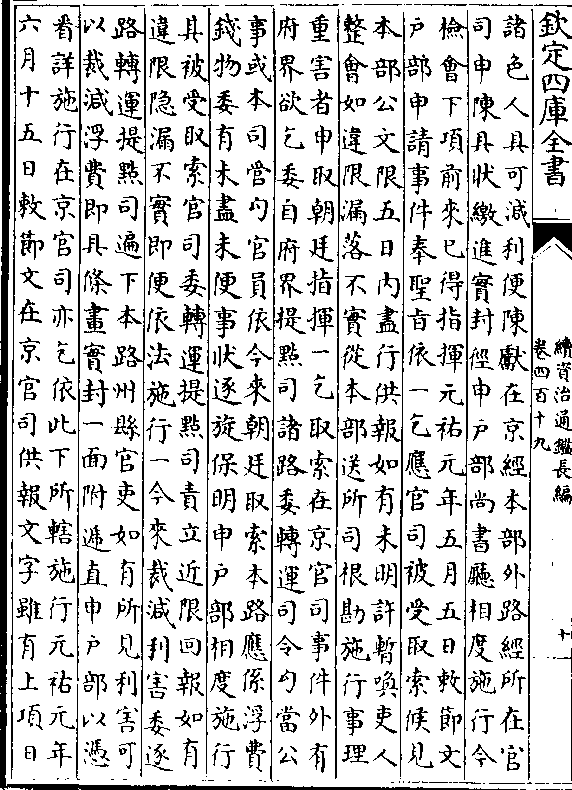 欽定四庫全書
續資治通鑑長編
卷四百十九
十
諸色人具可減利便陳獻在京經本部外路經所在官
司申陳具狀繳進實封徑申户部尚書廳相度施行今
檢會下項前來已得指揮元祐元年五月五日敕節文
户部申請事件奉聖旨依一乞應官司被受取索候見
本部公文限五日内盡行供報如有未明許暫喚吏人
整會如違限漏落不實從本部送所司根勘施行事理
重害者申取朝廷指揮一乞取索在京官司事件外有
府界欲乞委自府界提㸃司諸路委轉運司令勾當公
事或本司管勾官員依今來朝廷取索本路應係浮費
錢物委有未盡未便事狀逐旋保明申户部相度施行
其被受取索官司委轉運提㸃司責立近限回報如有
違限隐漏不實即便依法施行一今來裁減利害委逐
路轉運提㸃司遍下本路州縣官吏如有所見利害可
以裁減浮費即具條畫實封一面附遞直申户部以憑
看詳施行在京官司亦乞依此下所轄施行元祐元年
六月十五日敕節文在京官司供報文字雖有上項日